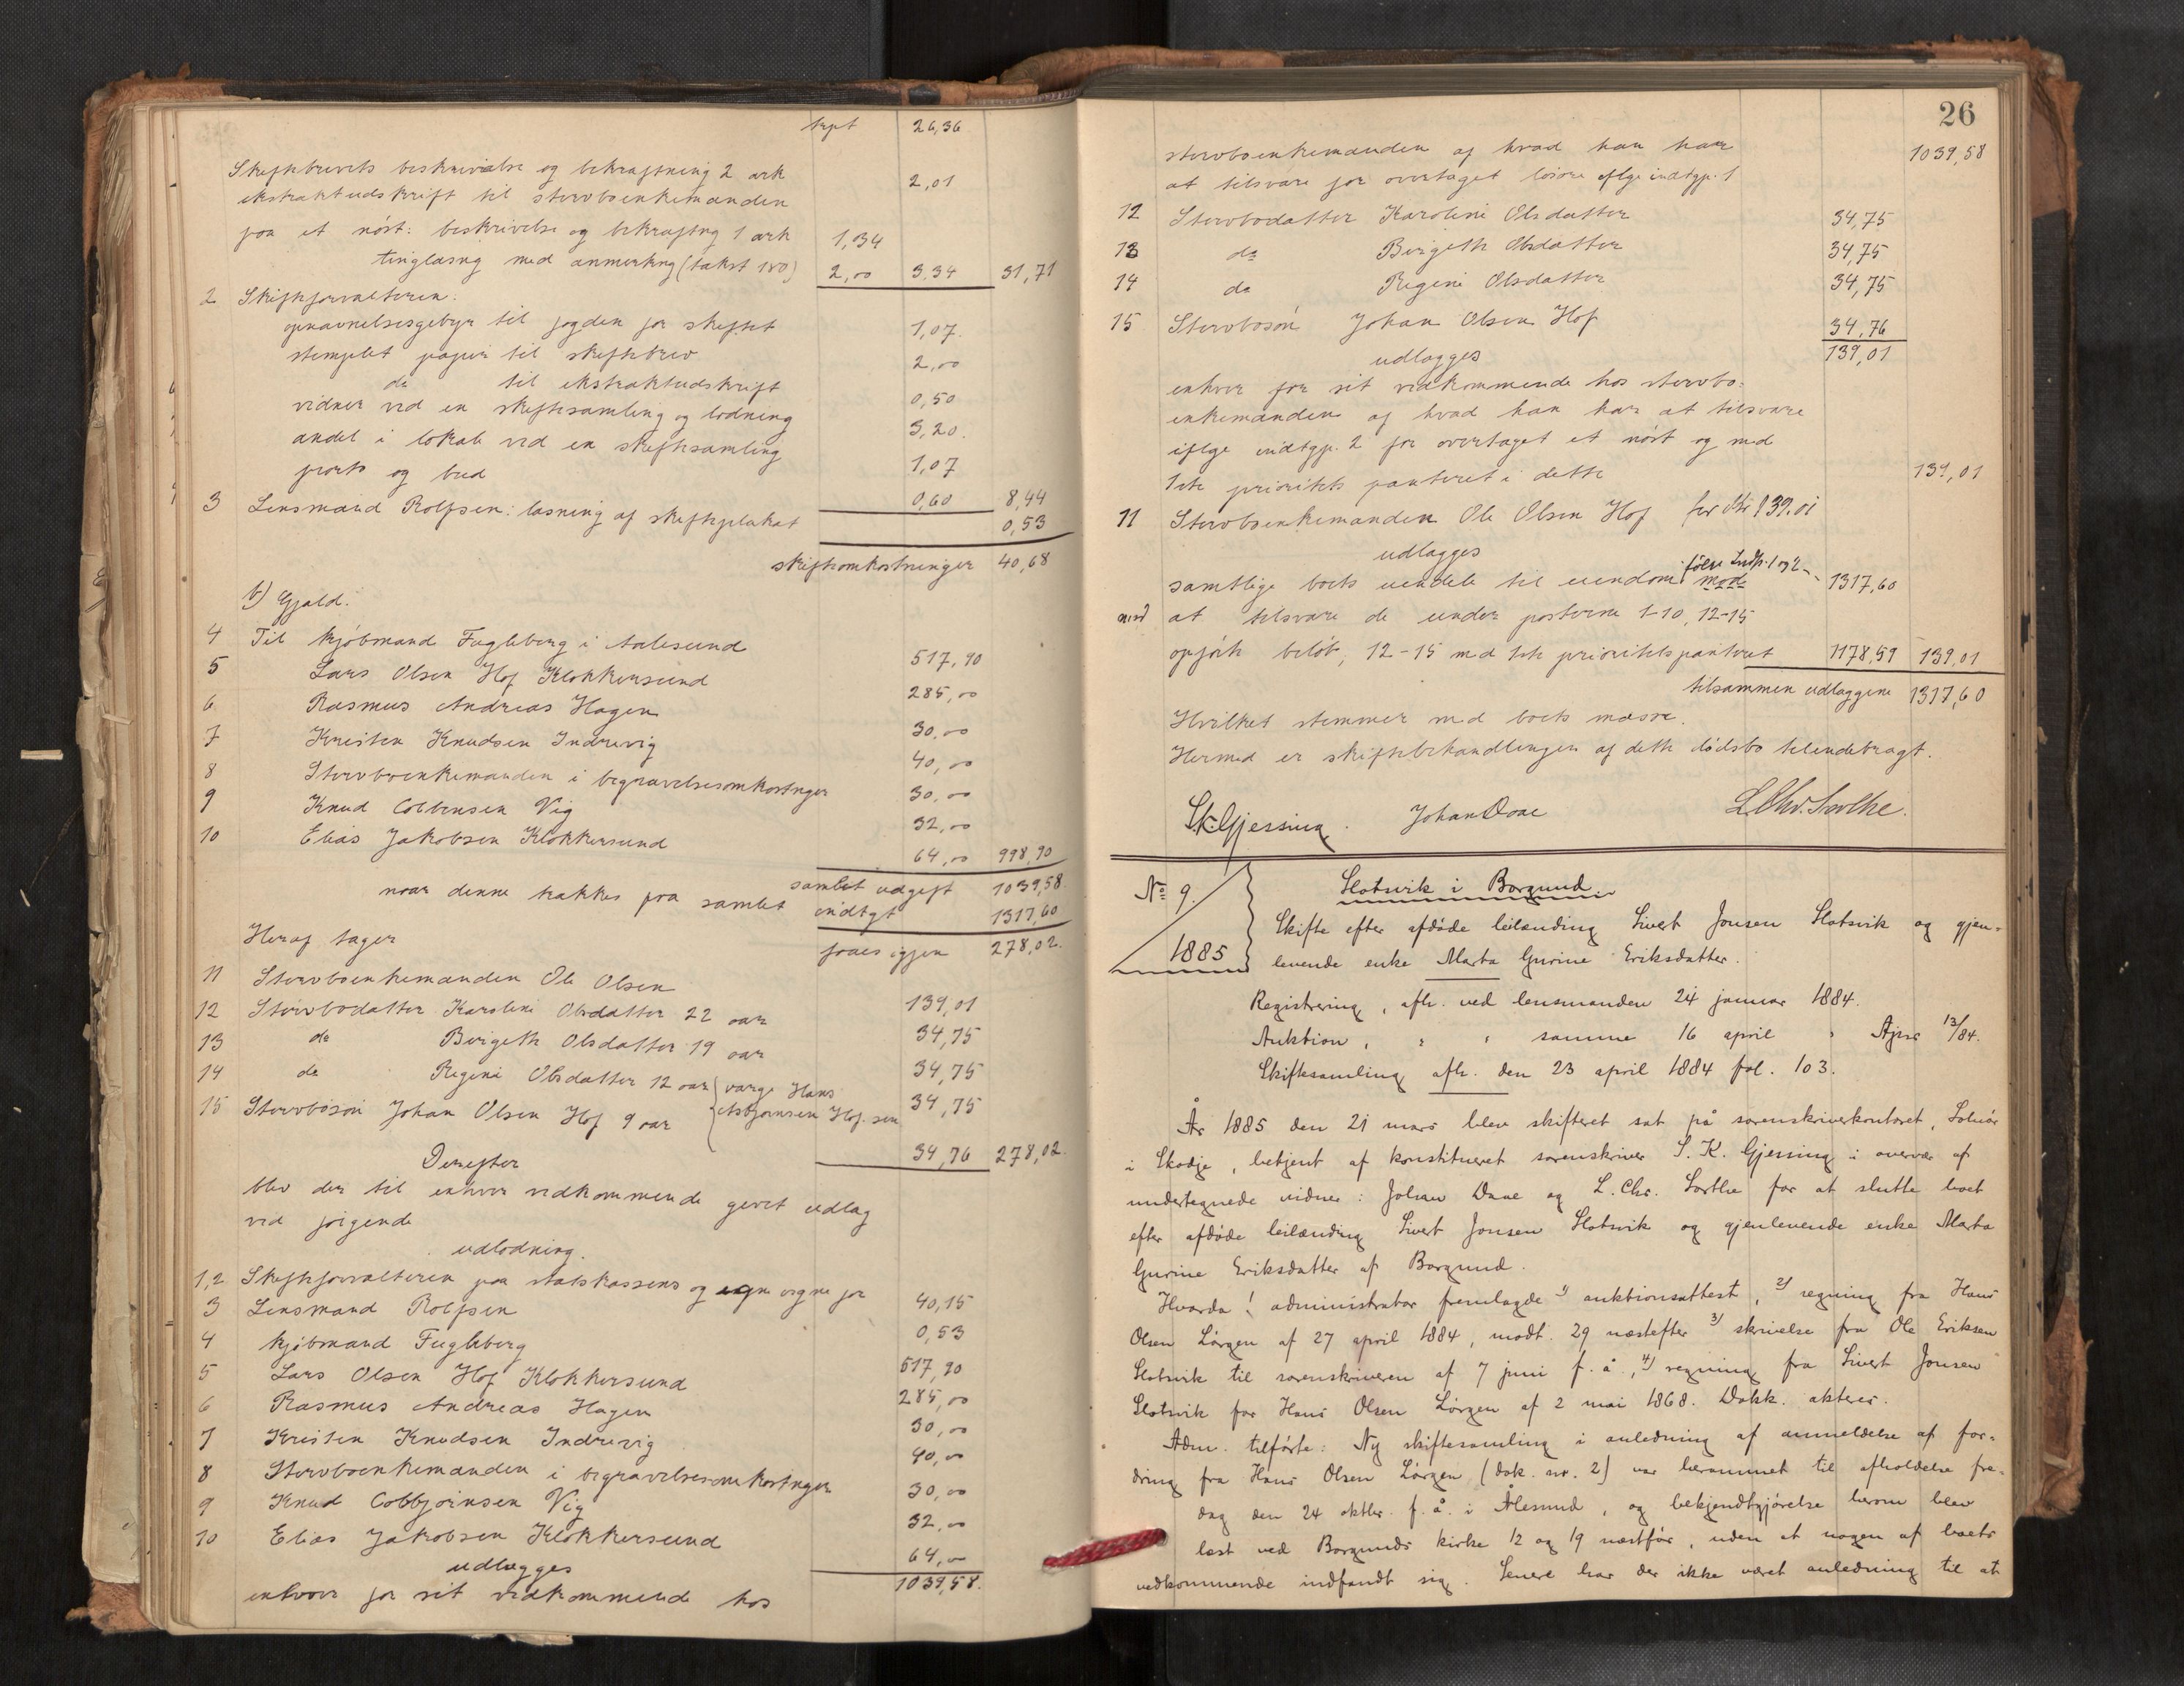 trpt 26,36
Skiftebrevets beskrivelse og bekræftning 2 ark 2,01
ekstraktudskrift til stervboenkemanden
paa et nöst: beskrivelse og bekræftng 1 ark 1,34
tinglæsng med anmerkng (takst 180) 2,00 3,34 31,71
2 Skifteforvalteren:
opnævnelsesgebyr til fogden for skiftet 1,07
stemplet papir til skiftebrev 2,00
do til ekstraktudskrift 0,50
vidner ved en skiftesamling og lodning 3,20
andel i lokale ved en skiftesamling 1,07
porto og bud 0,60 8,44
3 Lensmand Rolfsen: læsning af skifteplakat 0,53
skifteomkostninger 40,68
b) Gjæld.
4 Til kjöbmand Fugleberg i Aalesund 517,90
5 Lars Olsen Hof Klokkersund 285,00
6 Rasmus Andreas Hagen 30,00
7 Kristen Knudsen Indrevig 40,00
8 Stervboenkemanden i begravelsesomkostnger 30,00
9 Knud Colbensen Vig 32,00
10 Elias Jakobsen Klokkersund 64,00 998,90
samlet udgift 1039,58
naar denne trækkes fra samlet indtgt 1317,60
faaes igjen 278,02
Heraf tager
11 Stervboenkemanden Ole Olsen 139,01
12 Stervbodatter Karoline Olsdatter 22 aar 34,75
13 do Birgethe Olsdatter 19 aar 34,75
14 do Regine Olsdatter 12 aar værge Hans 34,75
15 Stervbosön Johan Olsen Hof 9 aar Asbjörnsen Hof. sen 34,76 278,02
Derefter
blev der til enhver vedkommende gjort udlæg
ved fölgende
udlodning.
1,2 Skifteforvalteren paa statskassens og egne vegne for 40,15
3 Lensmand Rolfsen 0,53
4 kjöbmand Fugleberg 517,90
5 Lars Olsen Hof Klokkersund 285,00
6 Rasmus Andreas Hagen 30,00
7 Kristen Knudsen Indrevig 40,00
8 Stervboenkemanden i begravelsesomkostnger 30,00
9 Knud Colbjörnsen Vig 32,00
10 Elias Jakobsen Klokkersund 64,00
udlægges 1039,58
enhver for sit vedkommende hos
26
stervboenkemanden af hvad han har 1039,58
at tilsvare for overtaget lösöre iflge indtgp. 1
12 Stervbodatter Karoline Olsdatter 34,75
13 do Birgethe Olsdatter 34,75
14 do Regine Olsdatter 34,75
15 Stervbosön Johan Olsen Hof 34,76
udlægges 139,01
enhver for sit vedkommende hos stervbo-
enkemanden af hvad han har at tilsvare
iflge indtgp. 2 for overtaget et nöst og med
1ste prioritets panteret i dette 139,01
11 Stervboenkemanden Ole Olsen Hof for 139.01
udlægges
samtlige boets eiendele til eiendom mod 1317,60
med at tilsvare de under posterne 1-10, 12-15
opförte belöb, 12-15 med 1ste prioritetspanteret 1178,59 139,01
tilsammen udlæggene 1317,60
Hvilket stemmer med boets masse.
Hermed er skiftebehandlingen af dette dödsbo tilendebragt.
S.K. Gjessing. Johan Daae L. Chr. Sæthe.
No 9. Slotsvik i Borgund
1885
Skifte efter afdöde leilænding Sivert Jonsen Slotsvik og gjen-
levende enke Marta Gurine Eriksdatter.
Registrering, afh. ved lensmanden 24 januar 1884.
Auktion, " " samme 16 april " Ajour 13/84.
Skiftesamling afh. den 23 april 1884 fol. 103.
År 1885 den 21 mars blev skifteret sat på sorenskriverkontoret, Solnör
i Skodje, betjent af konstitueret sorenskriver S. K. Gjessing i overvær af
undertegnede vidner: Johan Daae og L. Chr. Sæthe for at slutte boet
efter afdöde leilænding Sivert Jonsen Slotsvik og gjenlevende enke Marta
Gurine Eriksdatter af Borgund.
Hvorda! administrator fremlagde 1) auktionsattest, 2) regning fra Hans
Olsen Lörgen af 27 april 1884, modt. 29 næstefter 3) skrivelse fra Ole Eriksen
Slotsvik til sorenskriveren af 7 juni f. å., 4) regning fra Sivert Jonsen
Slotsvik for Hans Olsen Lörgen af 2 mai 1868. Dokk. akteres.
Adm. tilförte: Ny skiftesamling i anledning af anmeldelse af for-
dring fra Hans Olsen Lörgen (dok. nr. 2) var berammet til afholdelse fre-
dag den 24 oktbr. f. å. i Ålesund, og bekjendtgjörelse herom blev
læst ved Borgunds kirke 12 og 19 næstför, uden at nogen af boets
vedkommende indfandt sig. Senere har der ikke været anledning til at